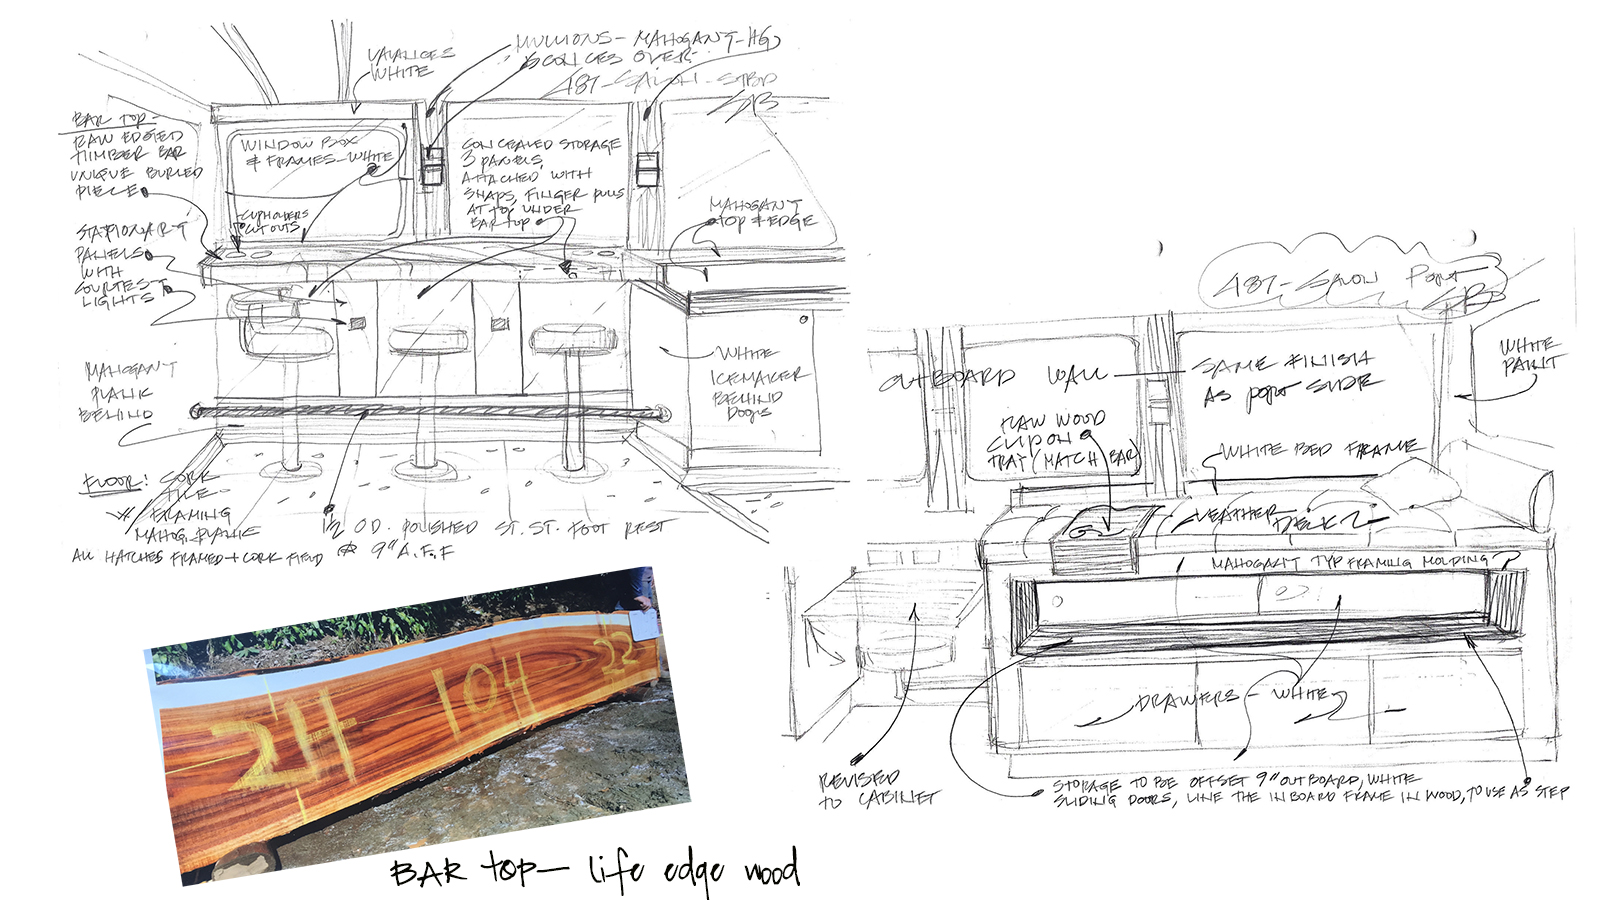 VALANCES
WHITE
MULLIONS - MAHOGANY - HG
SCONCES OVER
487 - SALON - STBD
BAR TOP -
RAW EDGED
TIMBER BAR
UNIQUE BURLED
PIECE
WINDOW BOX
& FRAMES - WHITE
CONCEALED STORAGE
3 PANELS,
ATTACHED WITH
SNAPS, FINGER PULLS
AT TOP, UNDER
BAR TOP
CUPHOLDERS
CUT OUTS
MAHOGANY
TOP & EDGE
STATIONARY
PANELS
WITH
COURTESY
LIGHTS
MAHOGANY
PLANK
BEHIND
WHITE
ICEMAKER
BEHIND
DOORS
FLOOR: CORK
TILE
W/ FRAMING
MAHOG. PLANK
ALL HATCHES FRAMED + CORK FIELD
1 1/2 O.D. POLISHED ST. ST. FOOT REST
@ 9" A.F.F
487 - SALON PORT
OUTBOARD WALL
SAME FINISH
AS PORT SLIDE
WHITE
PAINT
RAW WOOD
CLIP ON
TRAY (MATCH BAR)
WHITE BED FRAME
LEATHER
MAHOGANY TYP FRAMING MOLDING
DRAWERS - WHITE
REVISED
TO CABINET
STORAGE TO BE OFFSET 9" OUTBOARD, WHITE
SLIDING DOORS, LINE THE INBOARD FRAME IN WOOD, TO USE AS STEP
24 104 22
BAR TOP - life edge wood